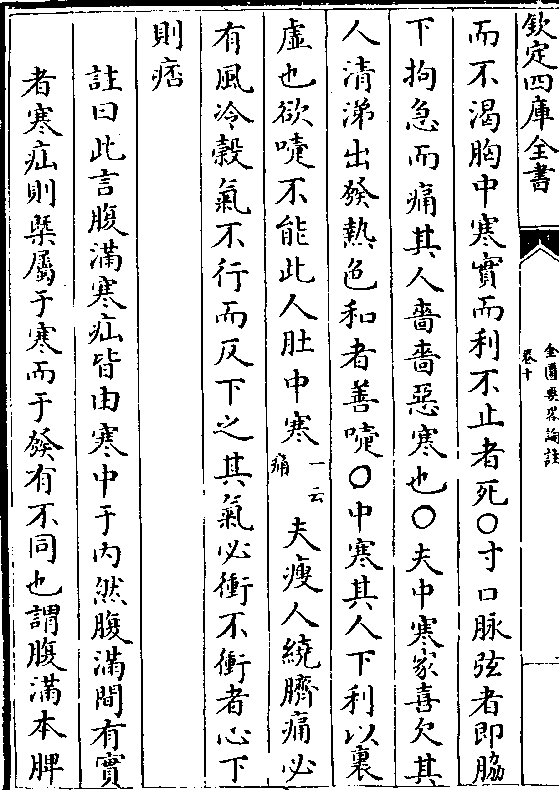 欽定四庫全書
金匱要畧論註
卷十
而不渴胸中寒實而利不止者死○寸口脉弦者即脇
下拘急而痛其人嗇嗇惡寒也○夫中寒家喜欠其
人清涕出發熱色和者善嚏○中寒其人下利以裏
虛也欲嚏不能此人肚中寒一云痛夫瘦人繞臍痛必
有風冷穀氣不行而反下之其氣必衝不衝者心下
則痞
註曰此言腹滿寒疝皆由寒中于内然腹滿間有實
者寒疝則槩屬于寒而于發有不同也謂腹滿本脾